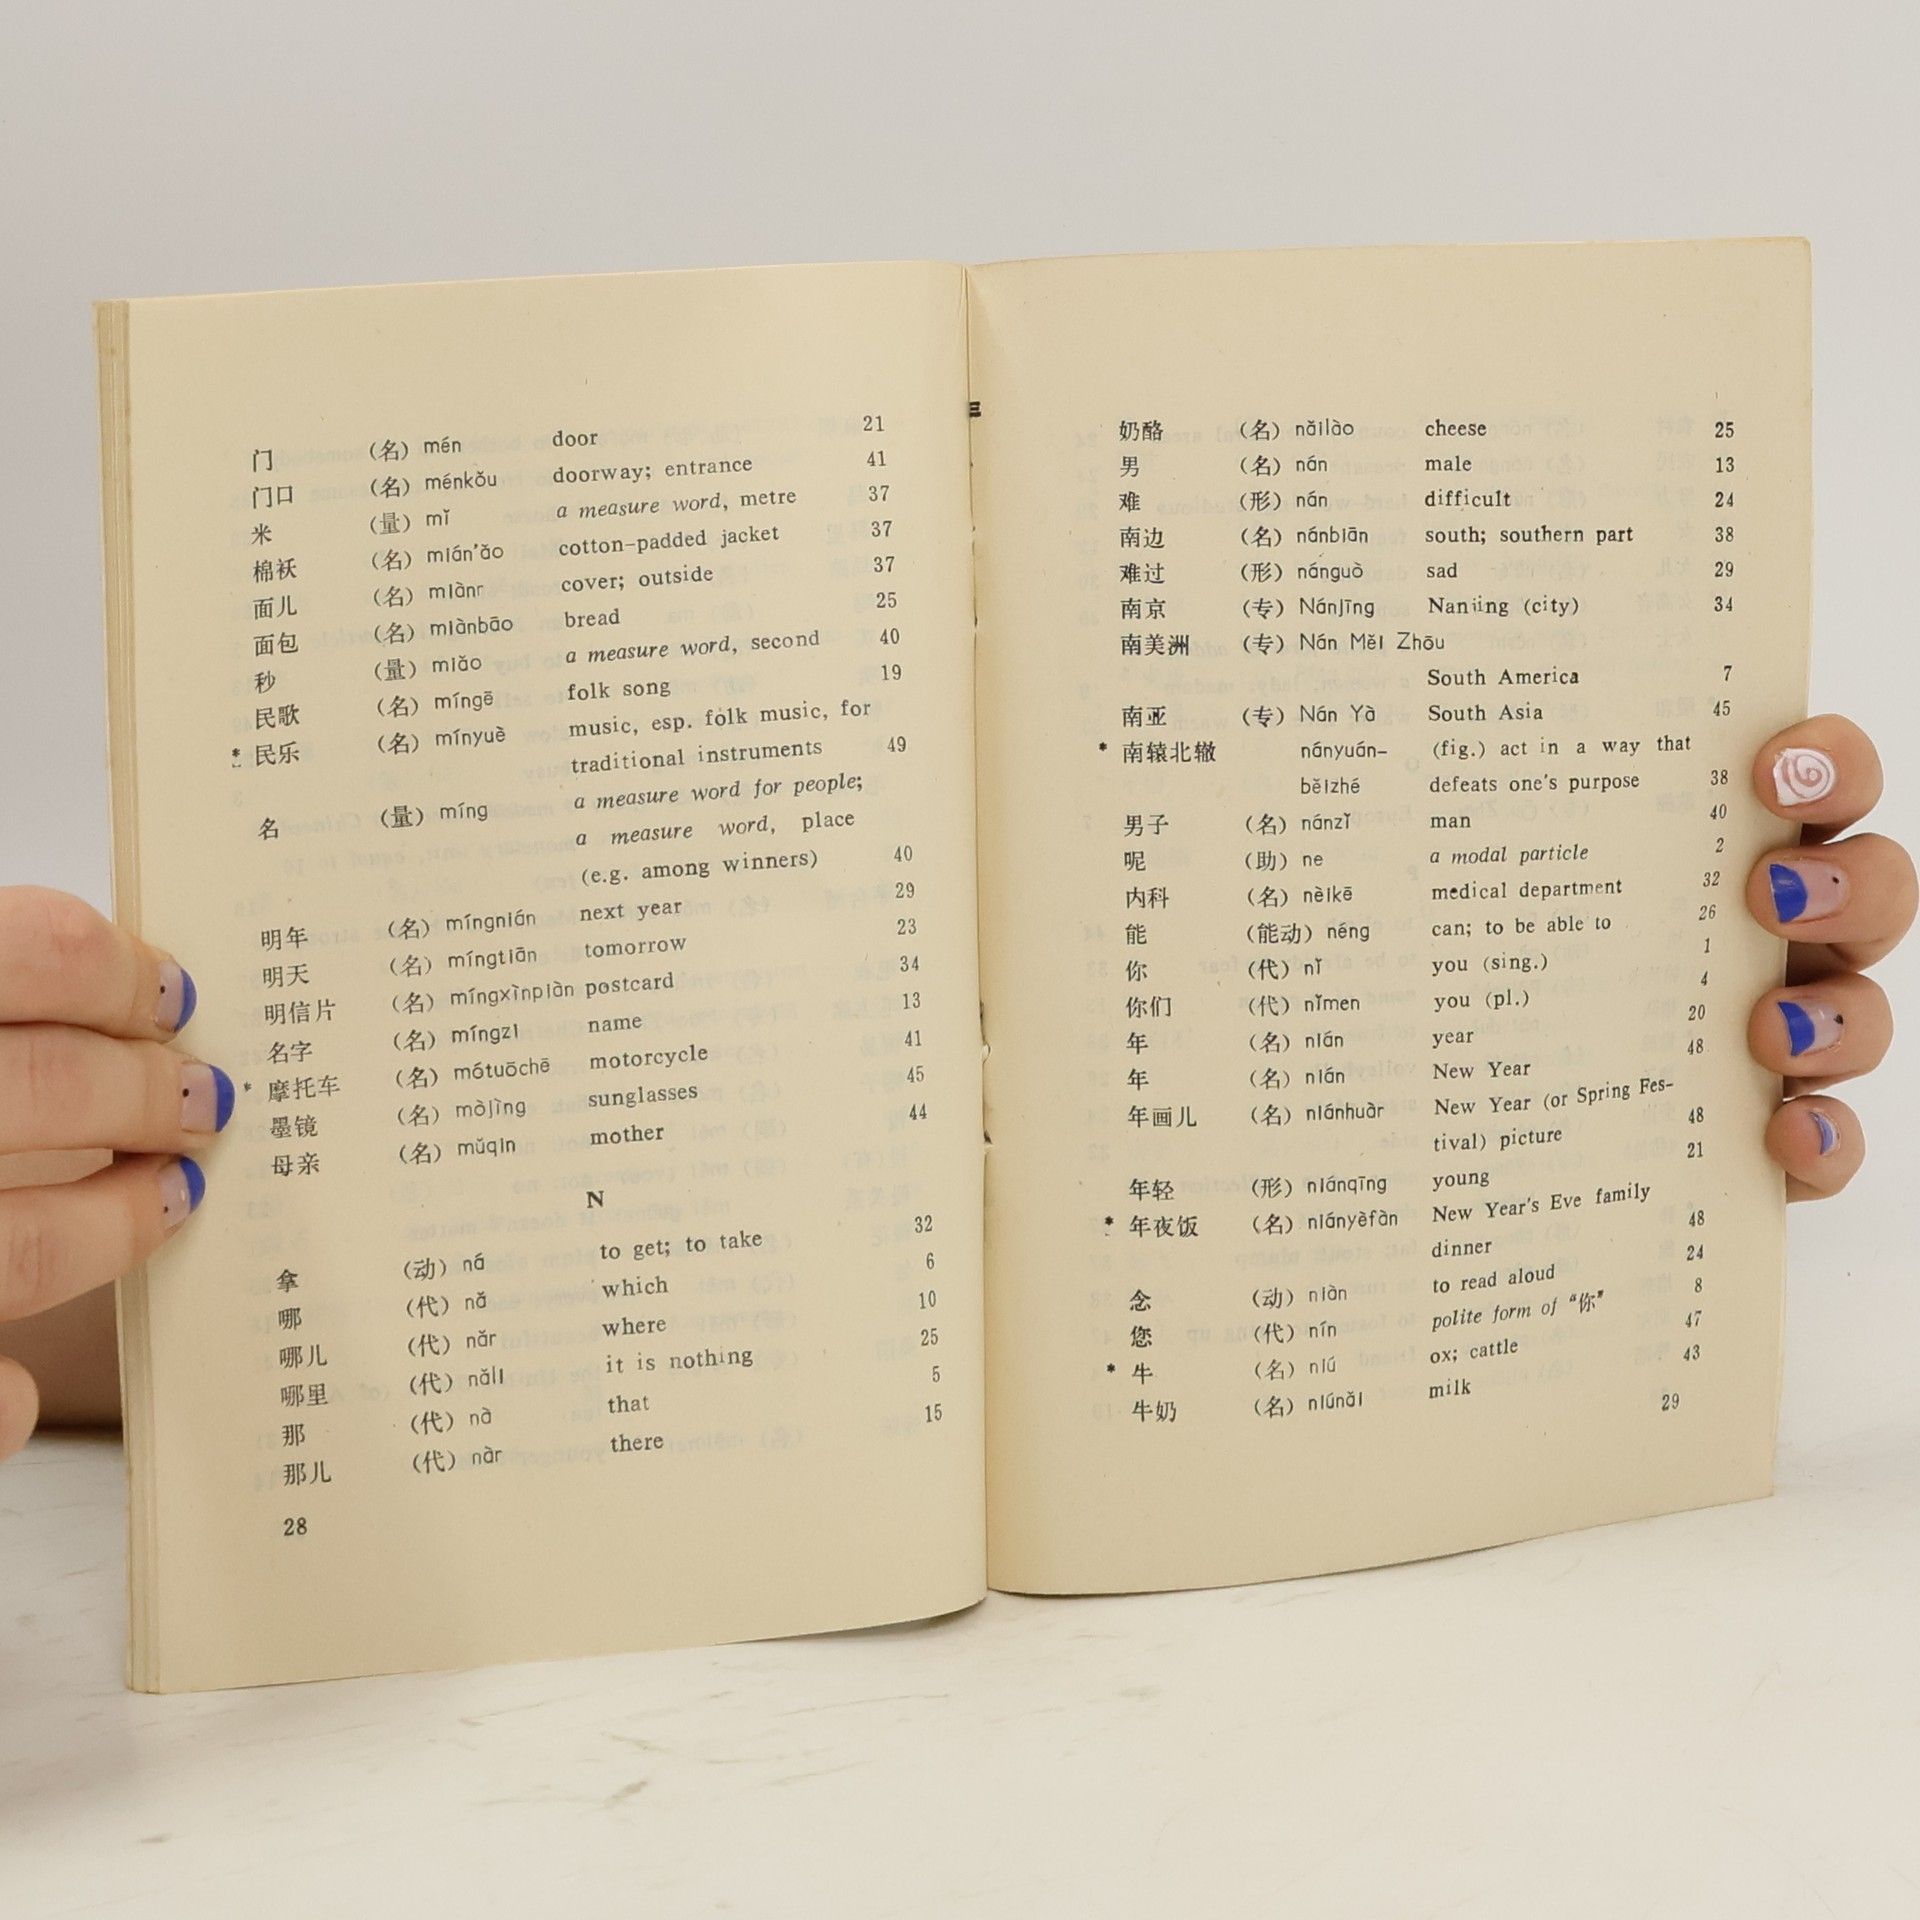 门 (名) mén door 21
门口 (名) ménkǒu doorway; entrance 41
米 (量) mǐ a measure word, metre 37
棉袄 (名) mián'ǎo cotton-padded jacket 37
面儿 (名) miànr cover; outside 37
面包 (名) miànbāo bread 25
秒 (量) miǎo a measure word, second 40
民歌 (名) míngē folk song 19
* 民乐 (名) mínyuè music, esp. folk music, for
traditional instruments 49
名 (量) míng a measure word for people;
a measure word, place
(e.g. among winners) 40
明年 (名) míngnián next year 29
明天 (名) míngtiān tomorrow 23
明信片 (名) míngxìnpiàn postcard 34
名字 (名) míngzi name 13
* 摩托车 (名) mótuōchē motorcycle 41
墨镜 (名) mòjìng sunglasses 45
母亲 (名) mǔqin mother 44
N
拿 (动) ná to get; to take 32
哪 (代) nǎ which 6
哪儿 (代) nǎr where 10
哪里 (代) nǎli it is nothing 25
那 (代) nà that 5
那儿 (代) nàr there 15
28
奶酪 (名) nǎilào cheese 25
男 (名) nán male 13
难 (形) nán difficult 24
南边 (名) nánbiān south; southern part 38
难过 (形) nánguò sad 29
南京 (专) Nánjīng Naniing (city) 34
南美洲 (专) Nán Měi Zhōu
South America 7
南亚 (专) Nán Yà South Asia 45
* 南辕北辙 nányuán- (fig.) act in a way that
běizhé defeats one's purpose 38
男子 (名) nánzǐ man 40
呢 (助) ne a modal particle 2
内科 (名) nèikē medical department 32
能 (能动) néng can; to be able to 26
你 (代) nǐ you (sing.) 1
你们 (代) nǐmen you (pl.) 4
年 (名) nián year 20
年 (名) nián New Year 48
年画儿 (名) niánhuàr New Year (or Spring Fes-
tival) picture 48
年轻 (形) niánqīng young 21
* 年夜饭 (名) niányèfàn New Year's Eve family
dinner 48
念 (动) niàn to read aloud 24
您 (代) nín polite form of "你" 8
* 牛 (名) niú ox; cattle 47
牛奶 (名) niúnǎi milk 43
29